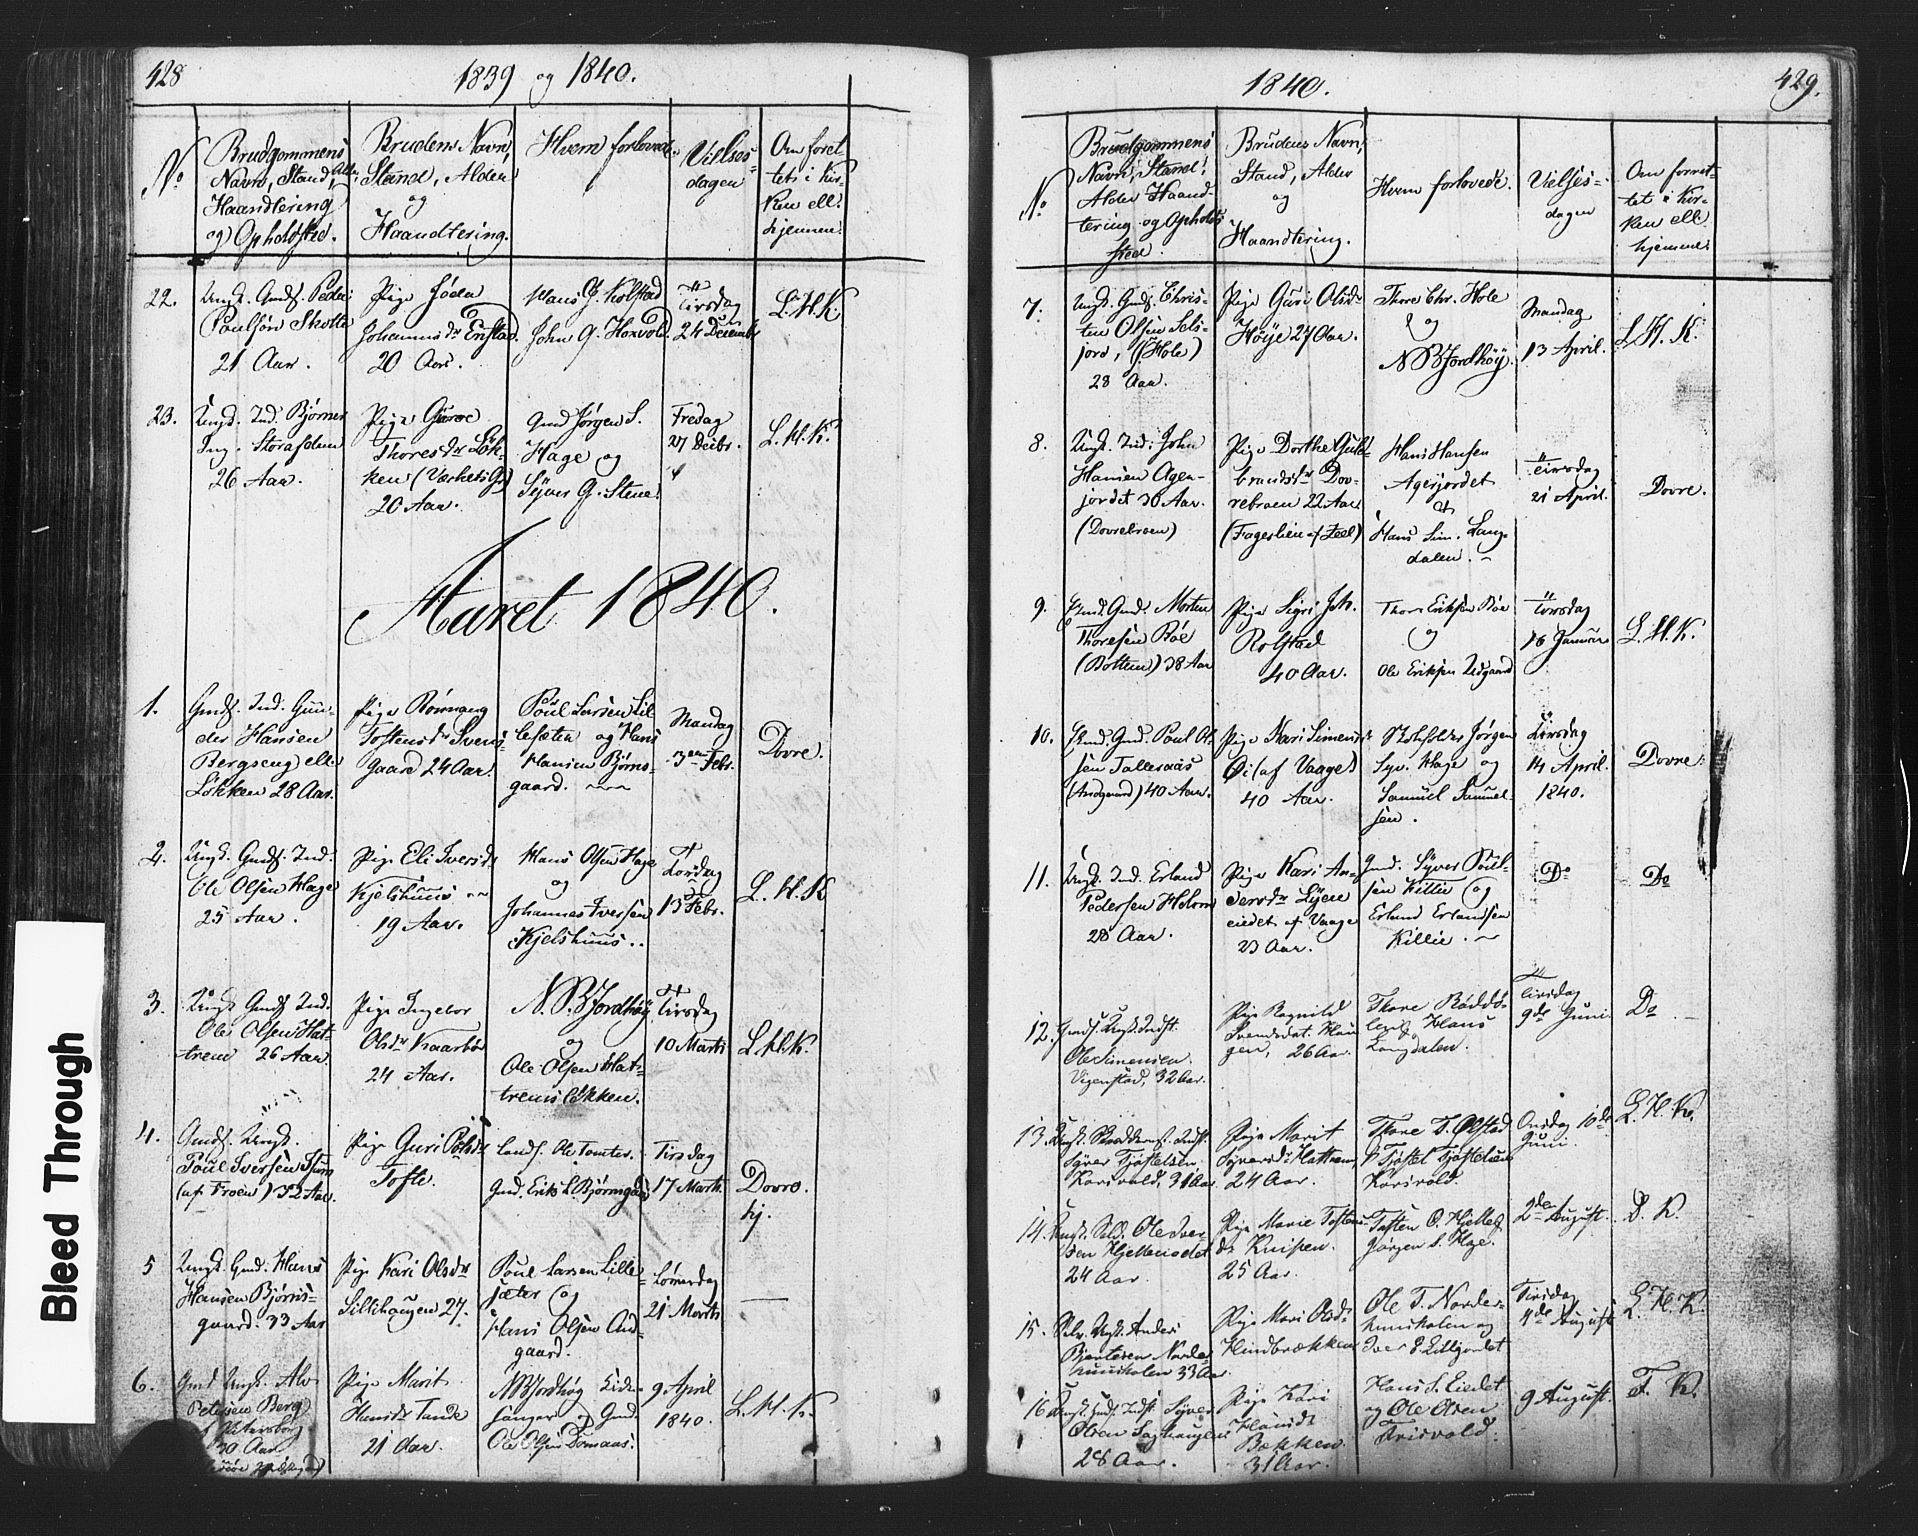 428
1839 og 1840.
No
Brudgommens
Navn, Stand, Alder
Haandtering
og Opholdsted.
Brudens Navn,
Stand, Alder
og
Haandtering.
Hvem forlovede.
Vielses-
dagen
Om foret
tet i Kir-
ken ell.
hjemme.
22.
Ungk. Gmdf. Peder
Poulsøn Skotte
21 Aar.
Pige
Johannisdr Enstad
20 Aar.
Hans G. Kolstad
John G.
Tirsdag
24 Decembr
L. H. K.
23.
Ungk. Ind. Bjørner
Ing. Storaforden
26 Aar.
Pige Guroe
Thoresdr Løk-
ken (Værkets G)
20 Aar.
Gmd Jørgen S.
Hage og
Syver G. Stene
Fredag
27 Decbr.
L. H. K.
Aaret 1840.
1.
Gmdf. Ind. Gun-
der Hansen
Bergseng ell.
Løkken 28 Aar.
Pige Rønnaug
Tostensdr Svens-
gaard 24 Aar.
Poul Larsen Lil
lesæter og Hans
Hansen Bjørns-
gaard.
Mandag
3 Febr.
Dovre.
2.
Ungk. Gmdf. Ind.
Ole Olsen Hage
25 Aar.
Pige Eli Iversdr
Kjelshuus
19 Aar.
Hans Olsen Hage
og
Johannes Iversen
Kjelshuus.
Lørdag
13 Febr.
L. H. K
3.
Ungk Gmdf Ind.
Ole Olsen Hat-
trem 26 Aar
Pige Ingebor
Olsdr Kaarbøe
24 Aar.
N. B. Jordhøy
og
Ole Olsen Hat-
trems Løkken.
Tirsdag
10 Marts
L. H. K.
4.
Gmdf. Ungk.
Poul Iversen
(af Froen) 32 Aar.
Pige Guri
Tofte.
Landh. Ole Tomter.
Gmd. Erik L. Bjørnsgaard
Tirsdag
17 Marts
Dovre.
hj.
5
Ungk. Gmd. Hans
Hansen Bjørns-
gaard. 33 Aar
Pige Kari Olsdr
Lillihaugen 27.
Poul Larsen Lille-
sæter og
Hans Olsen And-
gaard.
Lørverdag
21 Marts
6.
Gmd Ungk. Alv
Petersen Berg
Petersborg
30 Aar
Pige Marit
Hansdr Tande
21 Aar.
N B Jordhøy Kirke-
sanger og Gmd.
Ole Olsen Domaas.
9 April
1840.
L. H. K.
1840.
429.
No
Brudgommens
Navn, Stand,
Alder Haand-
tering og Opholds
sted.
Brudens Navn,
Stand, Alder
og
Haandtering.
Hvem forlovede.
Vielses-
dagen
Om forret-
tet i Kir-
ken ell
hjemme.
7.
Ungk. Gmdf. Chris-
ten Olsen Sels-
jord, (Hole)
28 Aar.
Pige Guri Olsdr
Høye 27 Aar.
Thore Chr. Hole
og
N B Jordhøy.
Mandag
13 April.
L. H. K.
8.
Ungk. Ind. John
Hansen Ager-
jordet 30 Aar.
(Dovrebroen)
Pige Dorthe Guld-
brandsdr Dov-
rebroen 22 Aar
(Fageslien af Leel)
Hans Hansen
Agerjordet
og
Hans Sim. Lang-
dalen.
Tirsdag
21 April.
Dovre.
9.
Enk. Gmd. Morten
Thoresen Bøe
(Botten) 38 Aar
Pige Sigri Joh.
Rolstad
40 Aar.
Thor Eriksen Bøe
og
Ole Eriksen Udgaard
Tirsdag
16 Januar
L. H. K.
10.
Enk. Gmd. Poul Ol-
sen Talleraas
(Andgaard) 40 Aar.
Pige Kari Simensdr
Øi (af Vaage)
40 Aar.
Skoleholder Jørgen
Syv. Hage og
Samuel Samuel-
sen.
Tirsdag
14 April.
1840.
Dovre.
11.
Ungk. Ind. Erland
Pedersen Holvm
28 Aar.
Pige Kari An-
dersdr
eiedet af Vaage
23 Aar.
Gmd. Syver Poul-
sen Killie og
Erland Erlandsen
Killie.
Do
Do
12.
Gmdf. Ungk. Indst.
Ole Simensen
Vigenstad, 32 Aar.
Pige Ragnild
Svendsdat. Hau
gen, 26 Aar
Thore
Hans
Langdalen.
Tirsdag
9de Juni
Do
13.
Ungk. Skrædderm. Indst.
Syver Tjøstelsen
Korsvold, 31 Aar
Pige Marit
Syversdr Hattrem,
24 Aar.
Thore T. Olstad
Tjøstel Tjøstelsen
Korsvold.
Onsdag 10de
Juni.
L. H. K.
14.
Ungk. Sold. Ole Iver
sen
24 Aar.
Pige Marie Tostens-
dr Knipen.
25 Aar.
Tosten O.
Jørgen S. Hage.
2den August.
D. K.
15.
Selv. Ungk. Anders
Bjertesen Norde-
huuskolen 33 Aar
Pige Mari Olsdr
Hindbrækken
Ole T. Norder-
huuskolen og
Iver E. Lilljordet
Tirsdag
4de August
L. H. K.
16
Ungk. Gmdf. Indst. Syver
Olsen Saghaugen
28 Aar.
Pige Kari
Hansdr
Bækken
31 Aar.
Hans S. Eiedet
og Ole Olsen
9 August.
F. K.
Bleed Through